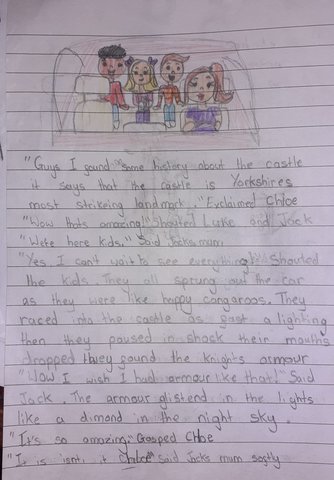 "Guys I found some history about the castle
it says that the castle is Yorkshires
most strikeing landmark." Exclaimed Chloe
"Wow thats amazing!" Shouted Luke and Jack
"We're here kids." Said Jacks mum
"Yes I can't wait to see everything!" Shouted
the kids. They all sprung out the car
as they were like happy cangaroos. They
raced into the castle as fast a lighting
then they paused in shock their mouths
dropped they found the knights armour
"Wow I wish I had armour like that!" Said
Jack. The armour glistend in the lights
like a dimand in the night sky.
"It's so amazing." Gasped Chloe
"It is isnt it Chloe" said Jacks mum softly